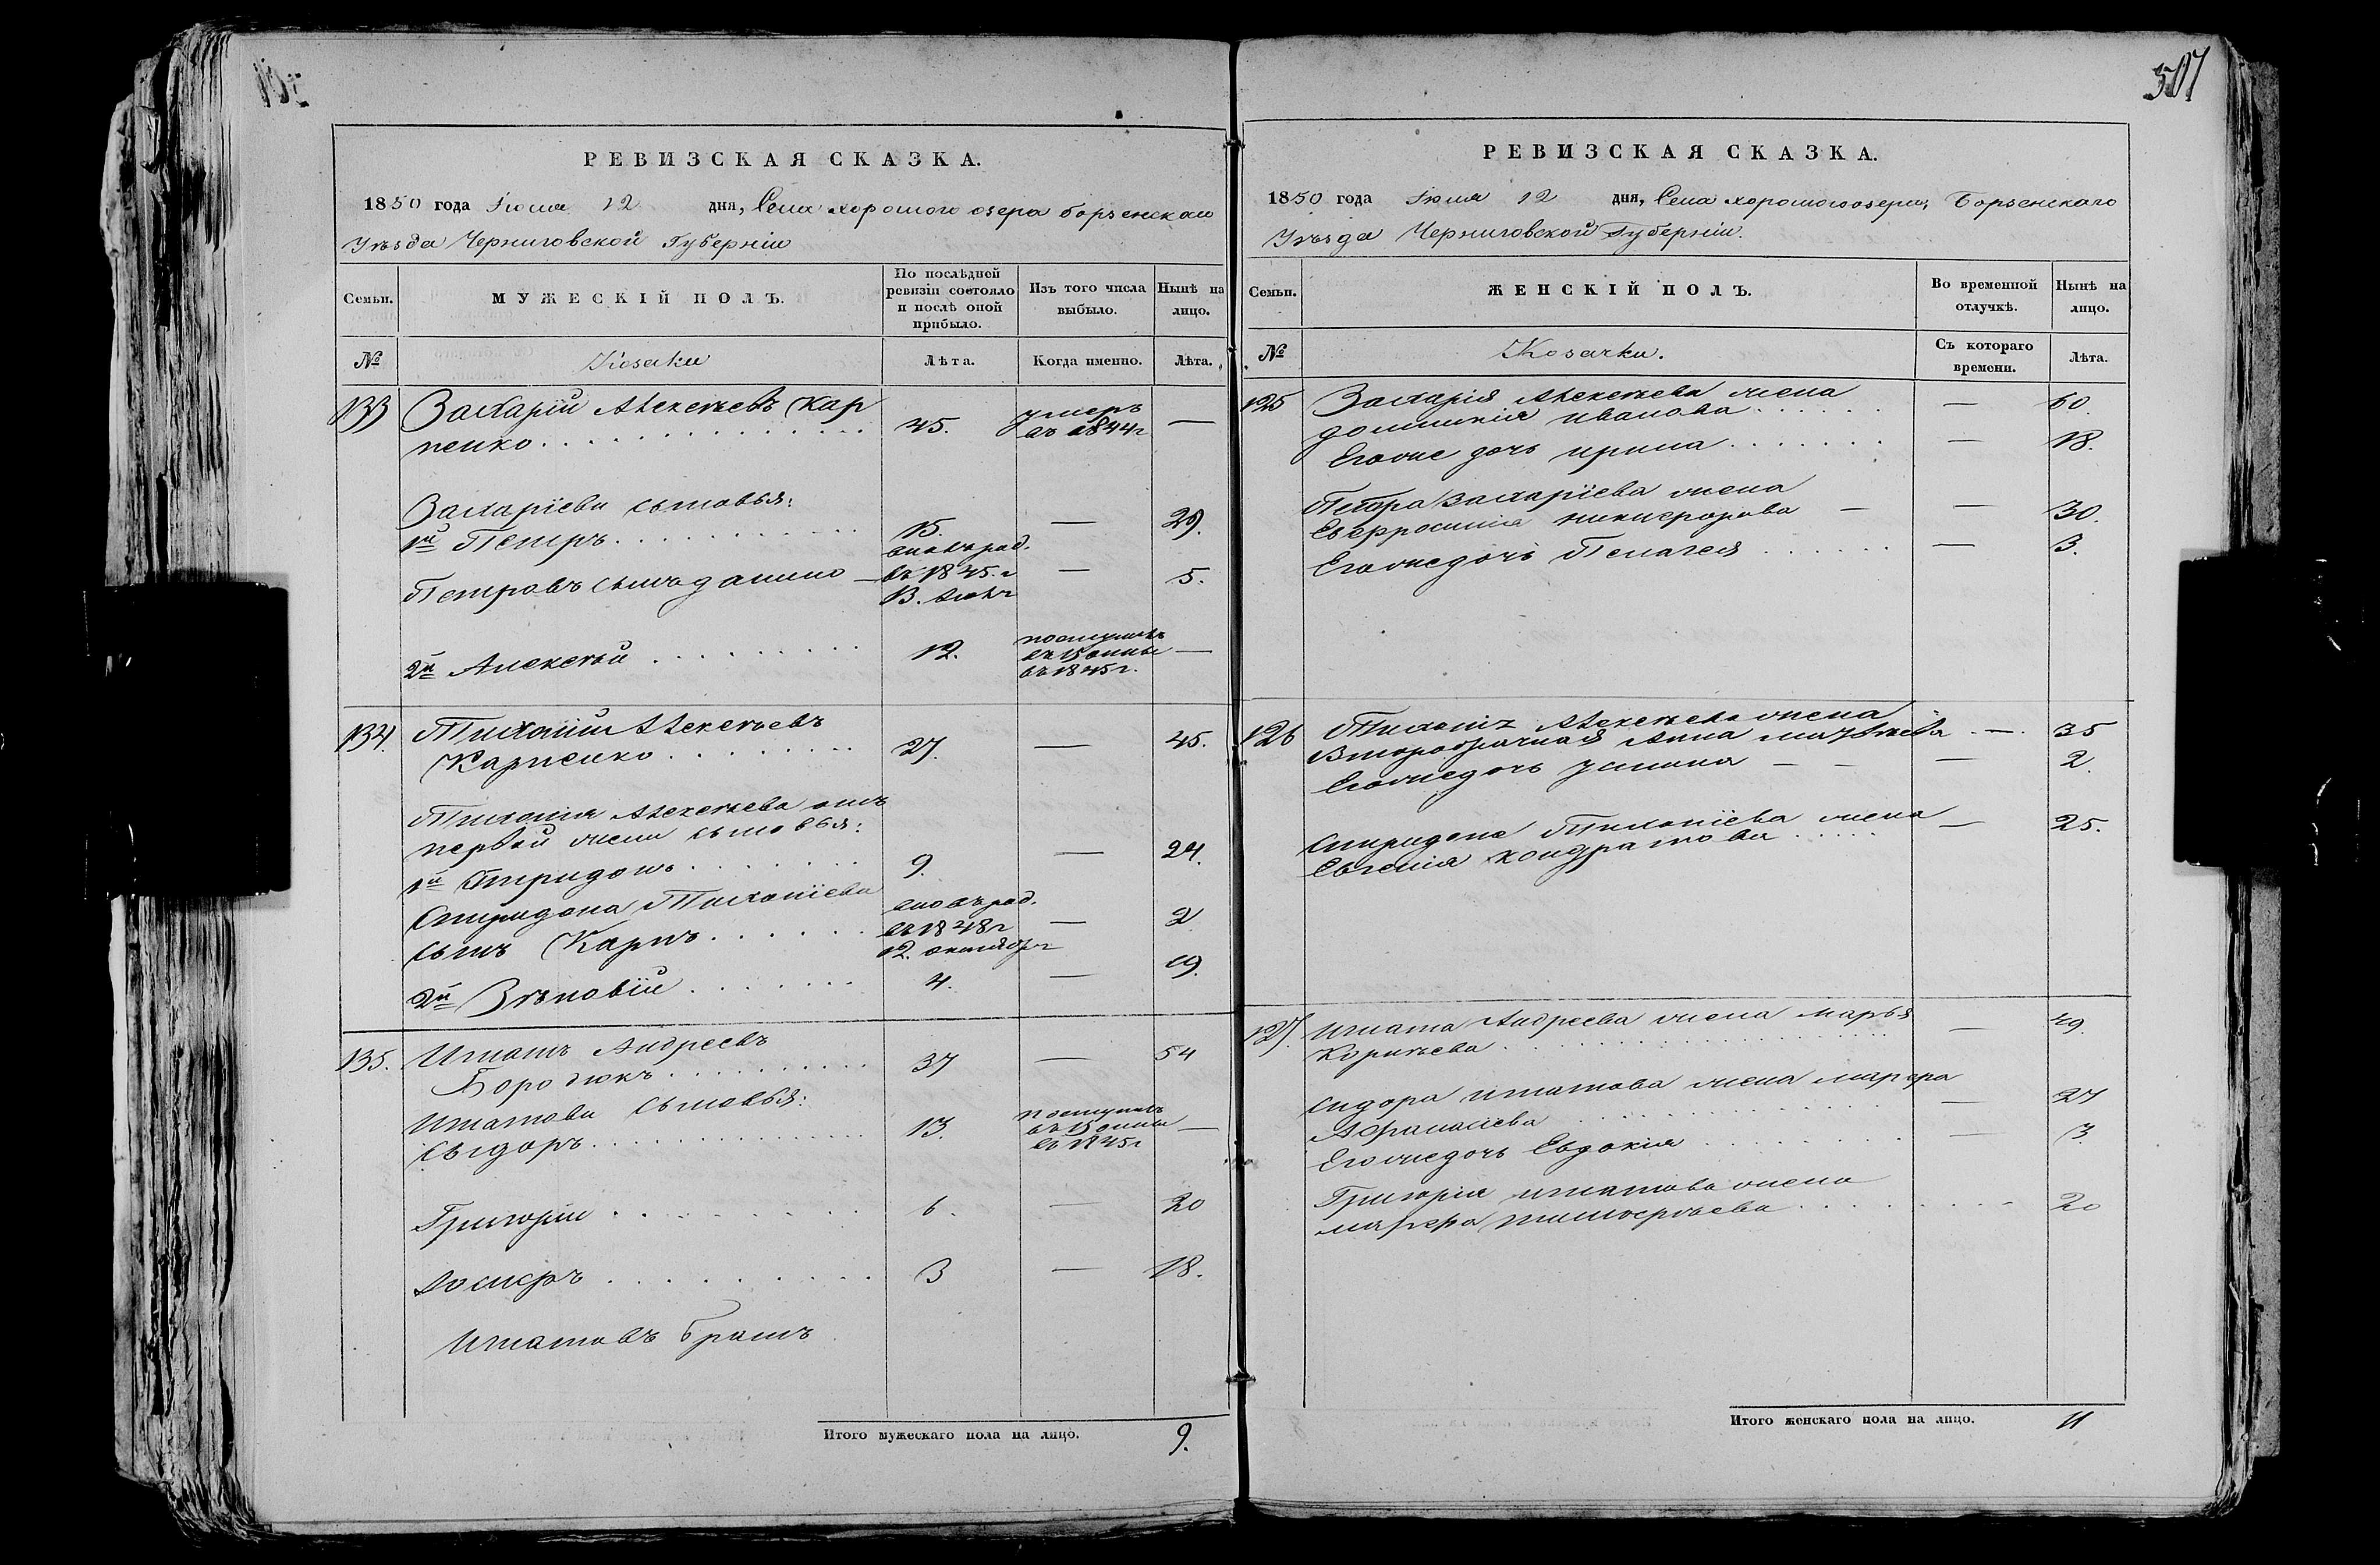 507
РЕВИЗСКАЯ СКАЗКА.
1850 года Июля 12 дня, Села хорошого озера борзенскаго
Уѣзда Черниговской Губерніи
Семьи.
МУЖЕСКІЙ ПОЛЪ.
По послѣдней ревизіи состояло и послѣ оной прибыло.
Изъ того числа выбыло.
Нынѣ на лицо.
№
Козаки
Лѣта.
Когда именно.
Лѣта.
133 Захарій Алексѣевъ Кар
пенко 45. умеръ въ 1844г —
Захаріеви сыновья:
1й Петръ 15. — 29.
Петровъ сынъ данило — вновь род. въ 1845.г 13. — 5.
2й Алексѣй 12. въ 1845г. —
134. Тихоній Алексѣевъ
Карпенко 27. — 45.
Тихонія Алексѣева отъ
первой жены сыновья:
1й Спиридонъ 9. — 24.
Спиридона Тихоніева
сынъ Карпъ вновь род. въ 1848г 12. октября — 2
2й Зѣновій 4. — 19.
135. Игнатъ Андреевъ
Бородюкъ 37 — 54
Игнатови сыновья:
Сыдоръ 13. въ 1845г —
Григорій 6. — 20
3 — 18.
Игнатовъ братъ
Итого мужескаго пола на лицо. 9.
РЕВИЗСКАЯ СКАЗКА.
1850 года Июля 12 дня, Села хорошого озера, Борзенскаго
Уѣзда Черниговской Губерніи.
Семьи.
ЖЕНСКІЙ ПОЛЪ.
Во временной отлучкѣ.
Нынѣ на лицо.
№
Козачки.
Съ котораго времени.
Лѣта.
125 Захарія Алексѣева жена
домникія иванова — 60.
Егоже дочь ирина — 18.
Петра Захаріева жена
Евфросинія никифорова — 30.
Егоже дочь Пелагея — 3.
126 Тихонія Алексѣева жена
Второбрачная Анна — 35
Егоже дочь улиана — 2.
Спиридона Тихоніева жена
Евгенія кондратова — 25.
127. Игната Андреева жена марья
Корнѣева — 49.
Сидора игнатова жена марфа
Афанасіева — 27
Егоже дочь Евдокія — 3
Григорія игнатова жена
марфа тимофеѣева 20
Итого женскаго пола на лицо. 11